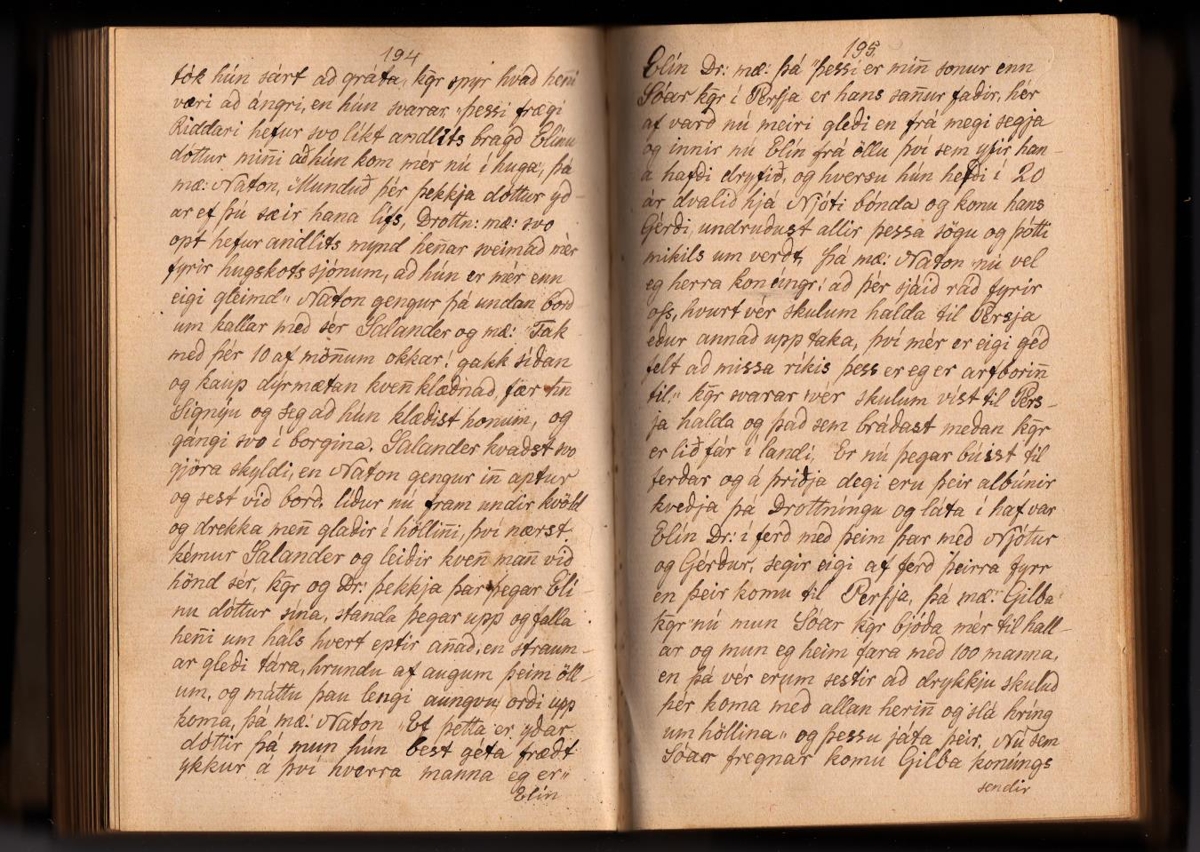 194
tók hún sárt ad gráta, kgr spyr hvad hen̄i
væri ad ángri, en hún svarar, "þessi frægi
Riddari hefur svo líkt andlits bragd Elínu
dóttur min̄i að hún kom mér nú í huga", þá
mæ: Naton, "Munduð þér þekkja dóttur yd-
ar ef þú sæir hana lífs, Drottn: mæ: svo
opt hefur andlits mynd hen̄ar sveimad mér
fyrir hugskots sjónum, ad hún er mér enn
eigi gleimd" Naton gengur þá undan bord-
um kallar med sér Salander og mæ: "Tak
med þér 10 af mön̄um okkar! gakk síðan
og kaup dýrmætan kven̄ klædnad, fær h̄n
Signýu og seg ad hún klædist honum, og
gángi svo í borgina. Salander kvaðst svo
gjöra skyldi, en Naton gengur in̄ aptur
og sest vid bord. líður nú fram undir kvöld
og drekka men̄ gladir í höllin̄i, því nærst
kémur Salander og leiðir kven̄ man̄ vid
hönd ser, kgr og Dr: þekkja þar þegar Elí-
nu dóttur sína, standa þegar upp og falla
hen̄i um háls hvert eptir an̄ad, en straum-
ar gleði tára, hrundu af augum þeim öll-
um, og máttu þau lengi aungvu orði upp
koma, þá mæ: Naton "Ef þetta er yðar
dóttir þá mun hún best géta frædt
ykkur á því hverra manna eg er"
Elín
195
Elín Dr: mæ: þá "þessi er min̄ sonur enn
Sóar kgr í Persja er hans san̄ur faðir, hér
af vard nú meiri gleði en frá megi segja
og innir nú Elín frá öllu því sem yfir han-
a hafði dryfið, og hversu hún hefdi í 20
ár dvalid hja Njóti bónda og konu hans
Gérði, undruðust allir þessa sögu og þótti
mikils um verdt, Þá mæ: Naton "nú vel
eg herra konúngr! ad þér sjáið rád fyrir
oss, hvurt vér skulum halda til Persja
eður annad upp taka, því mér er eigi géd
felt ad missa ríkis þess er eg er arfborin̄
til," kgr svarar "vér skulum víst til Pers-
ja halda og þad sem bráðast meðan kgr
er lið fár í landi, Er nú þegar búist til
ferðar og á þriðja degi eru þeir albúnir
kveðja þá Drottníngu og láta í haf var
Elín Dr: í ferd með þeim þar með Njótur
og Gérður, segir eigi af ferd þeirra fyrr
en þeir komu til Persja, þá mæ: Gilba
kgr "nú mun Sóar kgr bjóða mér til hall-
ar og mun eg heim fara með 100 manna,
en þá vér erum sestir ad drykkju skulud
þér koma með allan herin̄ og slá hríng
um höllina" og þessu játa þeir. Nú sem
Sóar fregnar komu Gilba konúngs
sendir